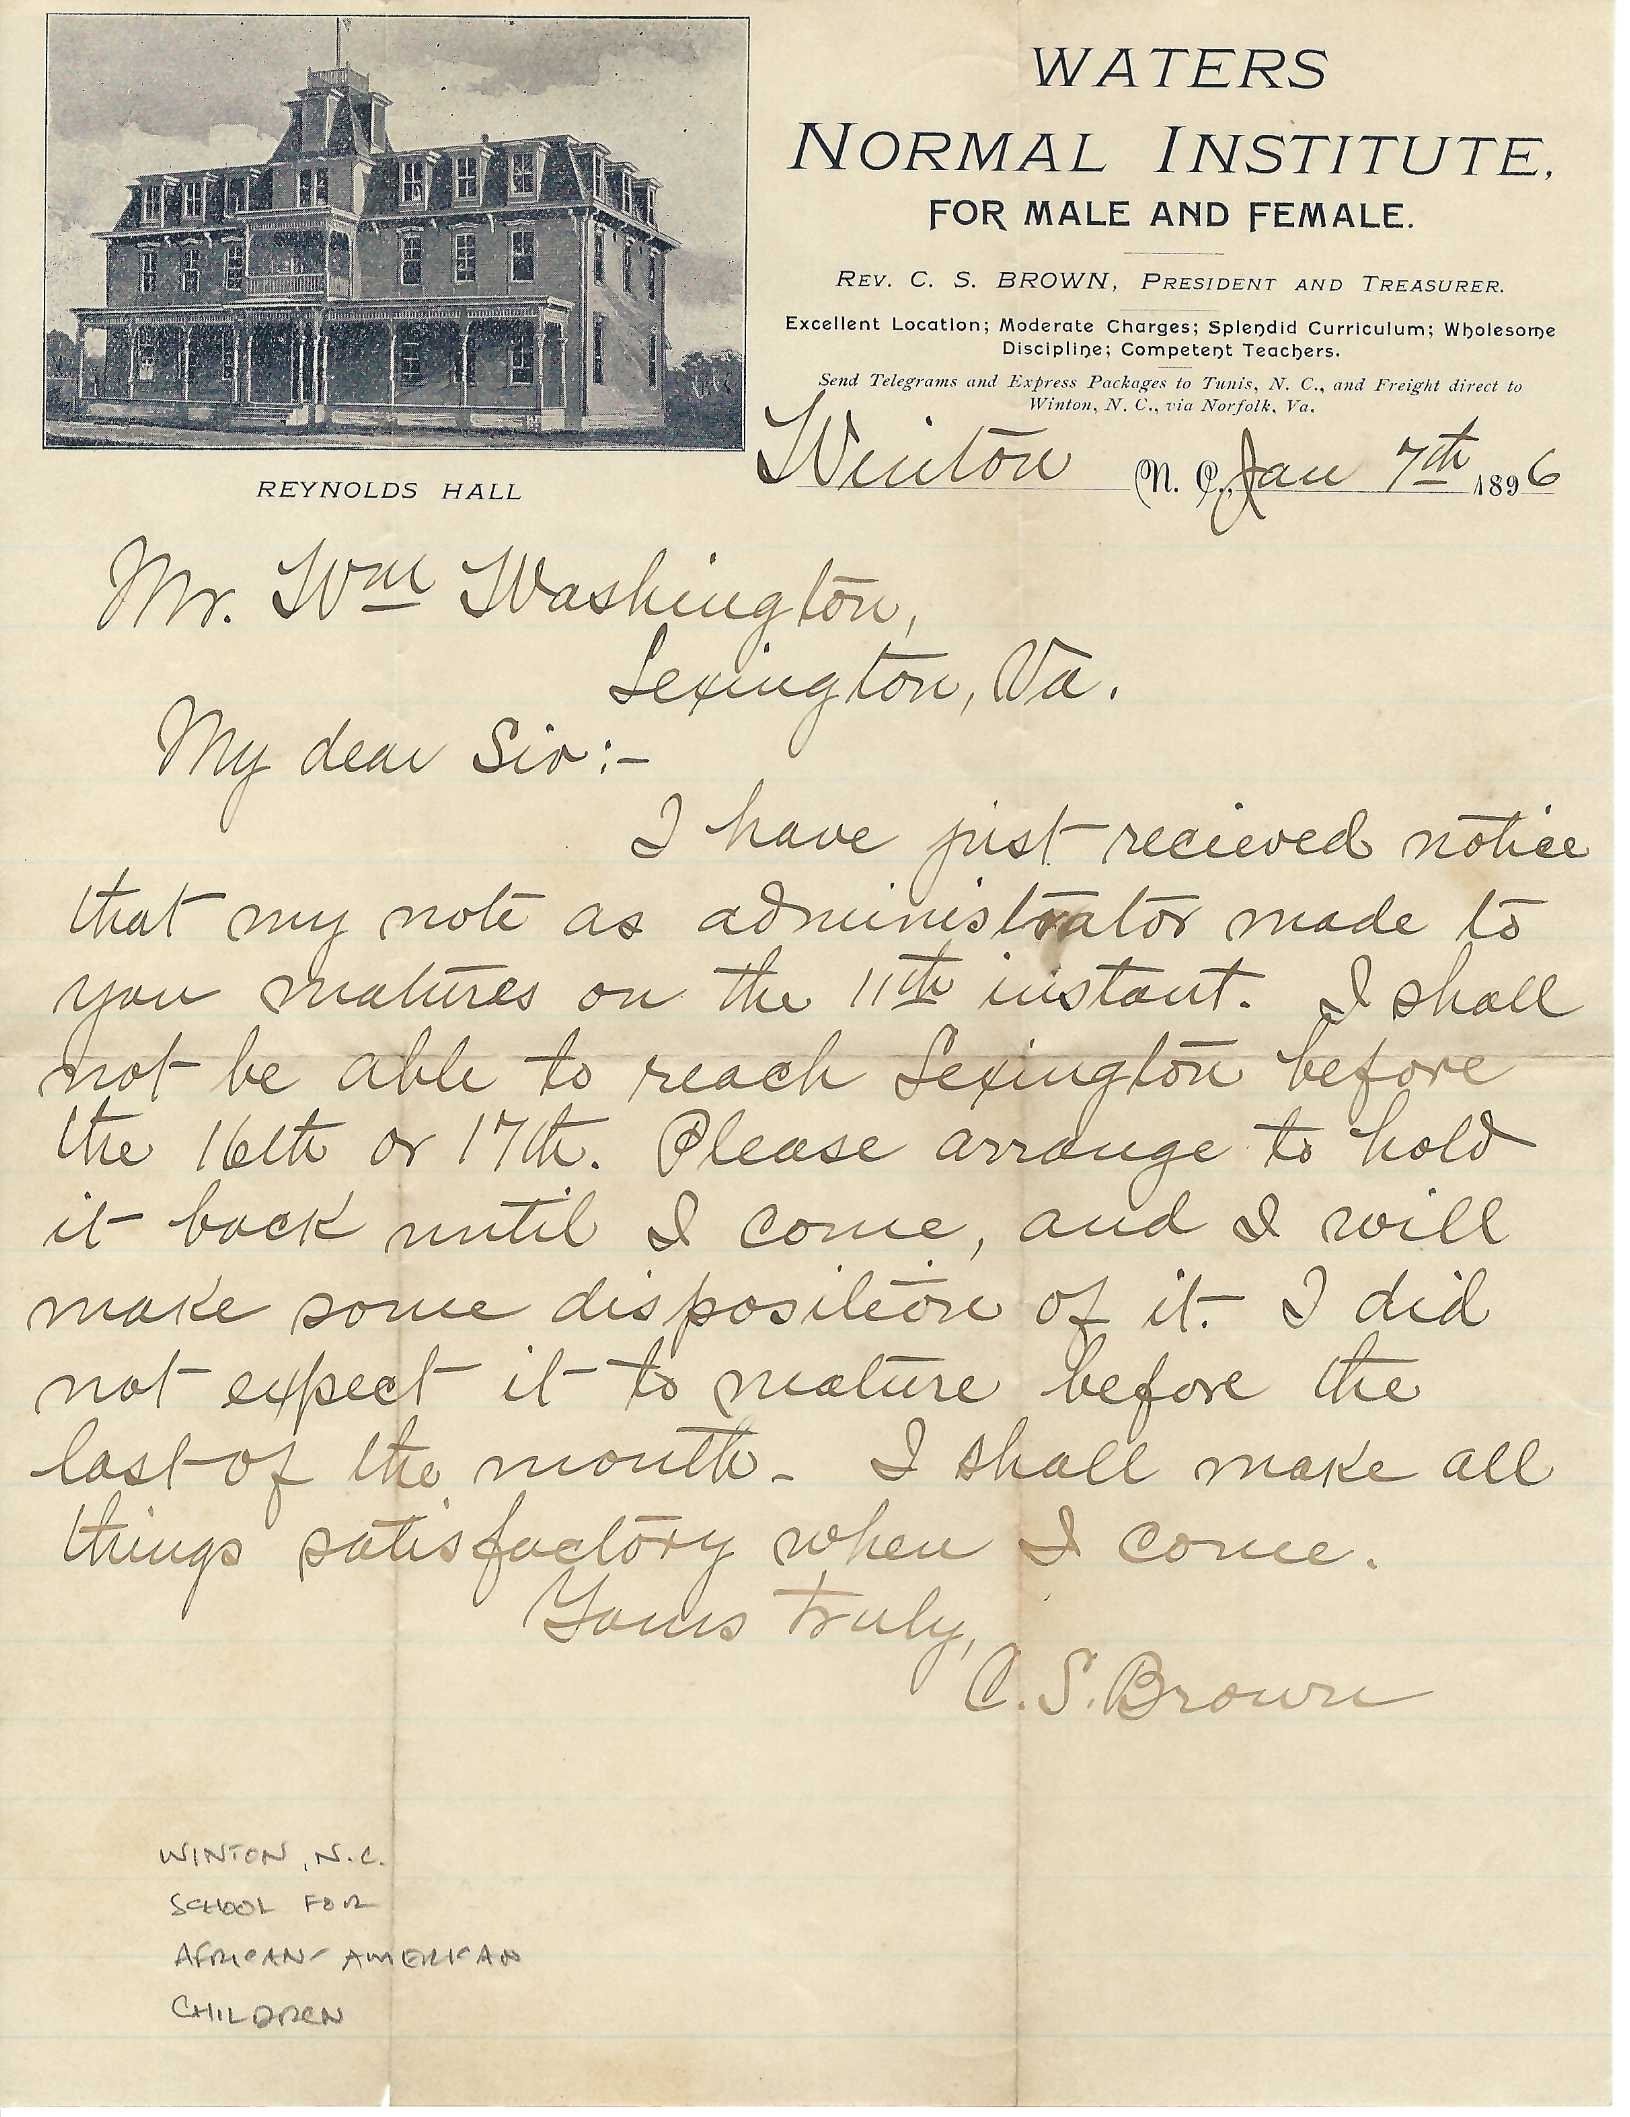 WATERS
NORMAL INSTITUTE,
FOR MALE AND FEMALE.
REV. C. S. BROWN, PRESIDENT AND TREASURER.
Excellent Location; Moderate Charges; Splendid Curriculum; Wholesome
Discipline; Competent Teachers.
Send Telegrams and Express Packages to Tunis, N. C., and Freight direct to
Winton, N. C., via Norfolk, Va.
REYNOLDS HALL
Winton N. C., Jan 7th 1896
Mr. Wm Washington,
Lexington, Va.
My dear Sir:-
I have just recieved notice
that my note as administrator made to
you matures on the 11th instant. I shall
not be able to reach Lexington before
the 16th or 17th. Please arrange to hold
it back until I come, and I will
make some disposition of it. I did
not expect it to mature before the
last of the month. I shall make all
things satisfactory when I come.
Yours truly,
C. S. Brown
WINTON, N.C.
SCHOOL FOR
AFRICAN-AMERICAN
CHILDREN